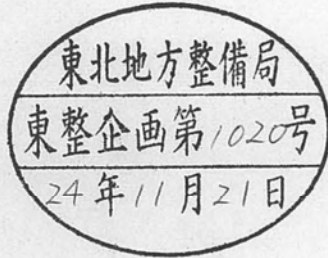 東北地方整備局
東整企画第1020号
24年11月21日